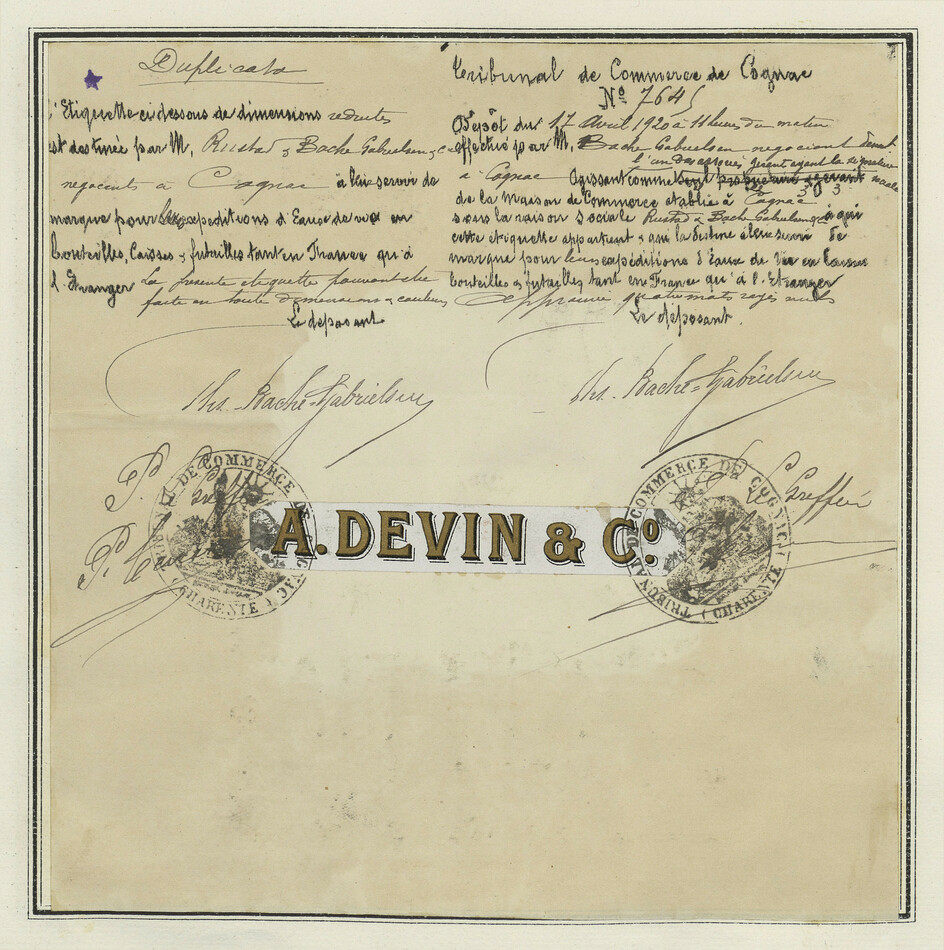 Duplicata
L'Etiquette ci dessous de dimensions reduites
est destinée par M, Rustad & Bache Gabrielsen & c
negociants à Cognac à lui servir de
marque pour les expeditions d'Eaux de vie en
bouteilles, Caisses & futailles tant en France qu'à
l'Etranger La presente etiquette pouvant etre
faite en toute dimensions & couleurs
Le déposant
Ths. Bache-Gabrielsen
P.
Greffier
Tribunal de Commerce de Cognac
No 7645
Dépôt du 17 Avril 1920 à 11 heures du matin
effectué par M, Bache Gabrielsen negociant demt
l'un des associés gérant ayant la signature
à Cognac Agissant comme seul propriétaire & gérant sociale
de la Maison de Commerce établie à Cognac
sous la raison Sociale Rustad & Bache Gabrielsen & Co à qui
cette etiquette appartient & qui la destine à leur servir de
marque pour leurs expéditions d'Eaux de Vie en Caisses
bouteilles & futailles tant en France qu'à l'Etranger
Approuvé quatre mots rayés nuls
Le déposant.
Ths. Bache-Gabrielsen
Le Greffier
TRIBUNAL DE COMMERCE DE COGNAC (CHARENTE)
A. DEVIN & Co.
TRIBUNAL DE COMMERCE DE COGNAC (CHARENTE)